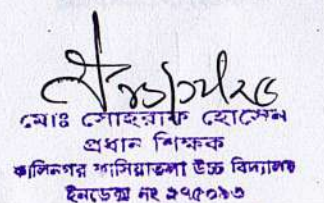 মোঃ সোহরাফ হোসেন
প্রধান শিক্ষক
কালিনগর ফাসিয়াতলা উচ্চ বিদ্যালয়
ইনডেক্স নং ২৭৫০৯৩